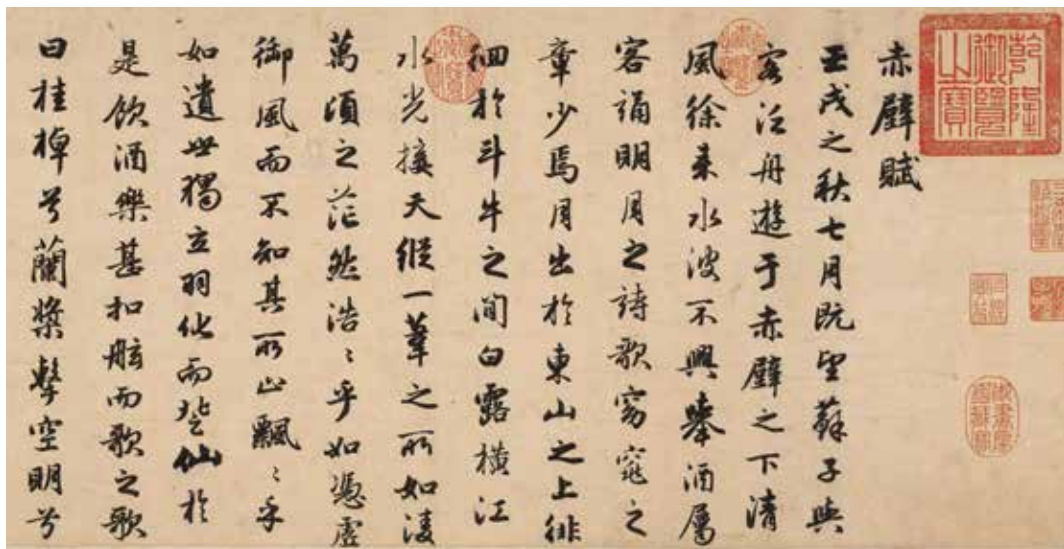 赤壁賦
壬戌之秋七月既望蘇子與
客泛舟遊于赤壁之下清
風徐来水波不興舉酒屬
客誦明月之詩歌窈窕之
章少焉月出於東山之上徘
徊於斗牛之間白露橫江
水光接天縱一葦之所如凌
萬頃之茫然浩〻乎如憑虛
御風而不知其所止飄〻乎
如遺世獨立羽化而登仙於
是飲酒樂甚扣舷而歌之歌
曰桂棹兮蘭槳擊空明兮
乾隆御覽之寶